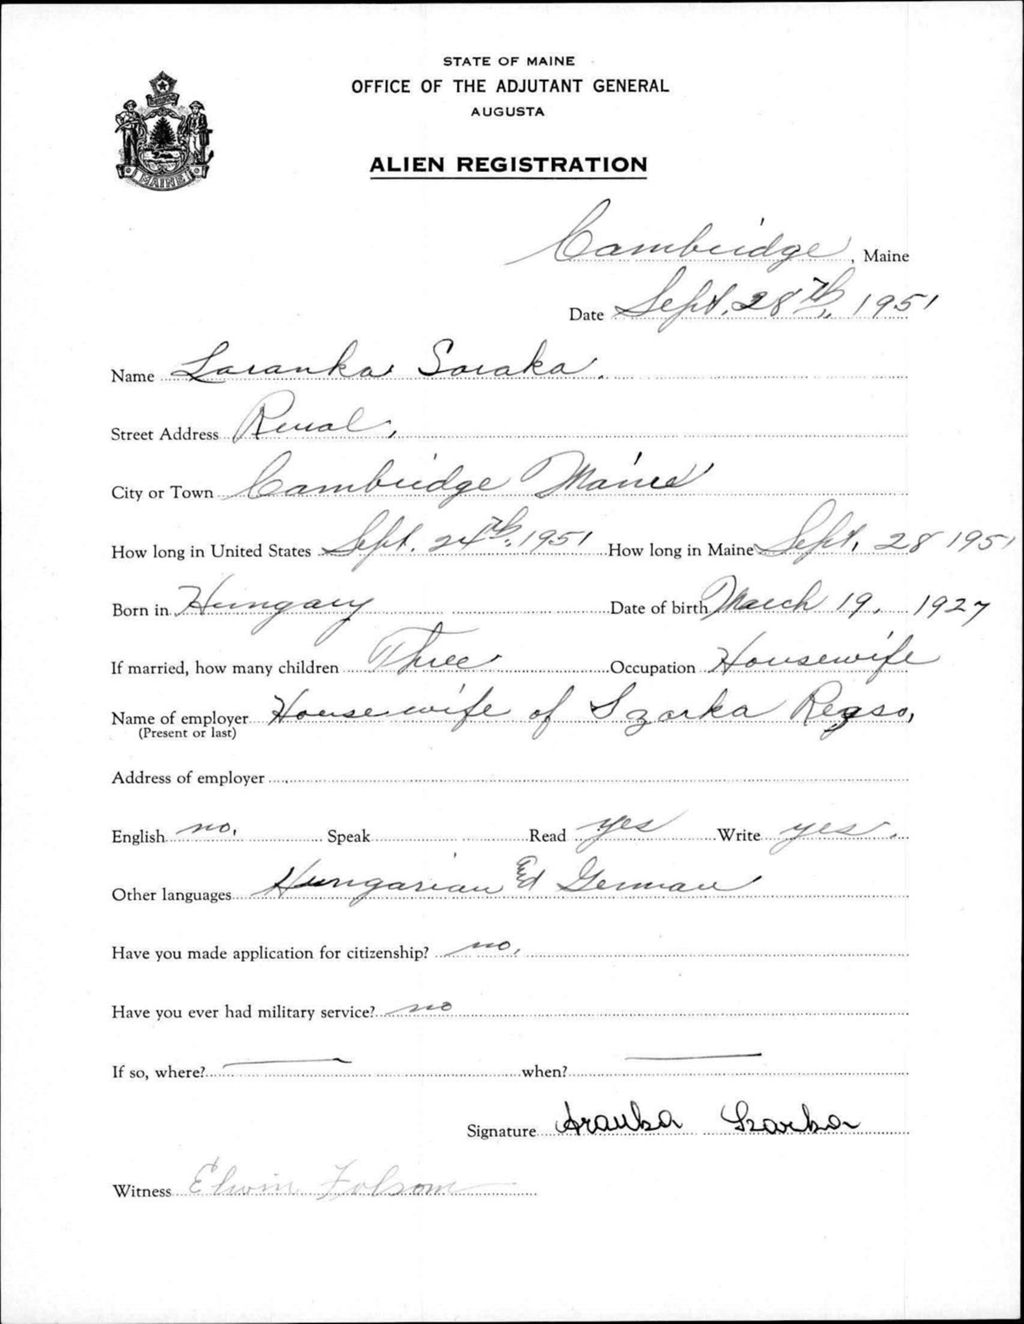 STATE OF MAINE
OFFICE OF THE ADJUTANT GENERAL
AUGUSTA
MAINE
ALIEN REGISTRATION
Cambridge, Maine
Date Sept. 28th, 1951
Name Laranka Soraka.
Street Address Rural,
City or Town Cambridge Maine
How long in United States Sept. 24th, 1951 How long in Maine Sept. 28 1951
Born in Hungary Date of birth March 19, 1927
If married, how many children Three Occupation Housewife
Name of employer Housewife of Szarka
(Present or last)
Address of employer
English no. Speak Read yes Write yes.
Other languages Hungarian German
Have you made application for citizenship? no.
Have you ever had military service? no
If so, where? when?
Signature Aranka Szarka
Witness Elwin Folsom